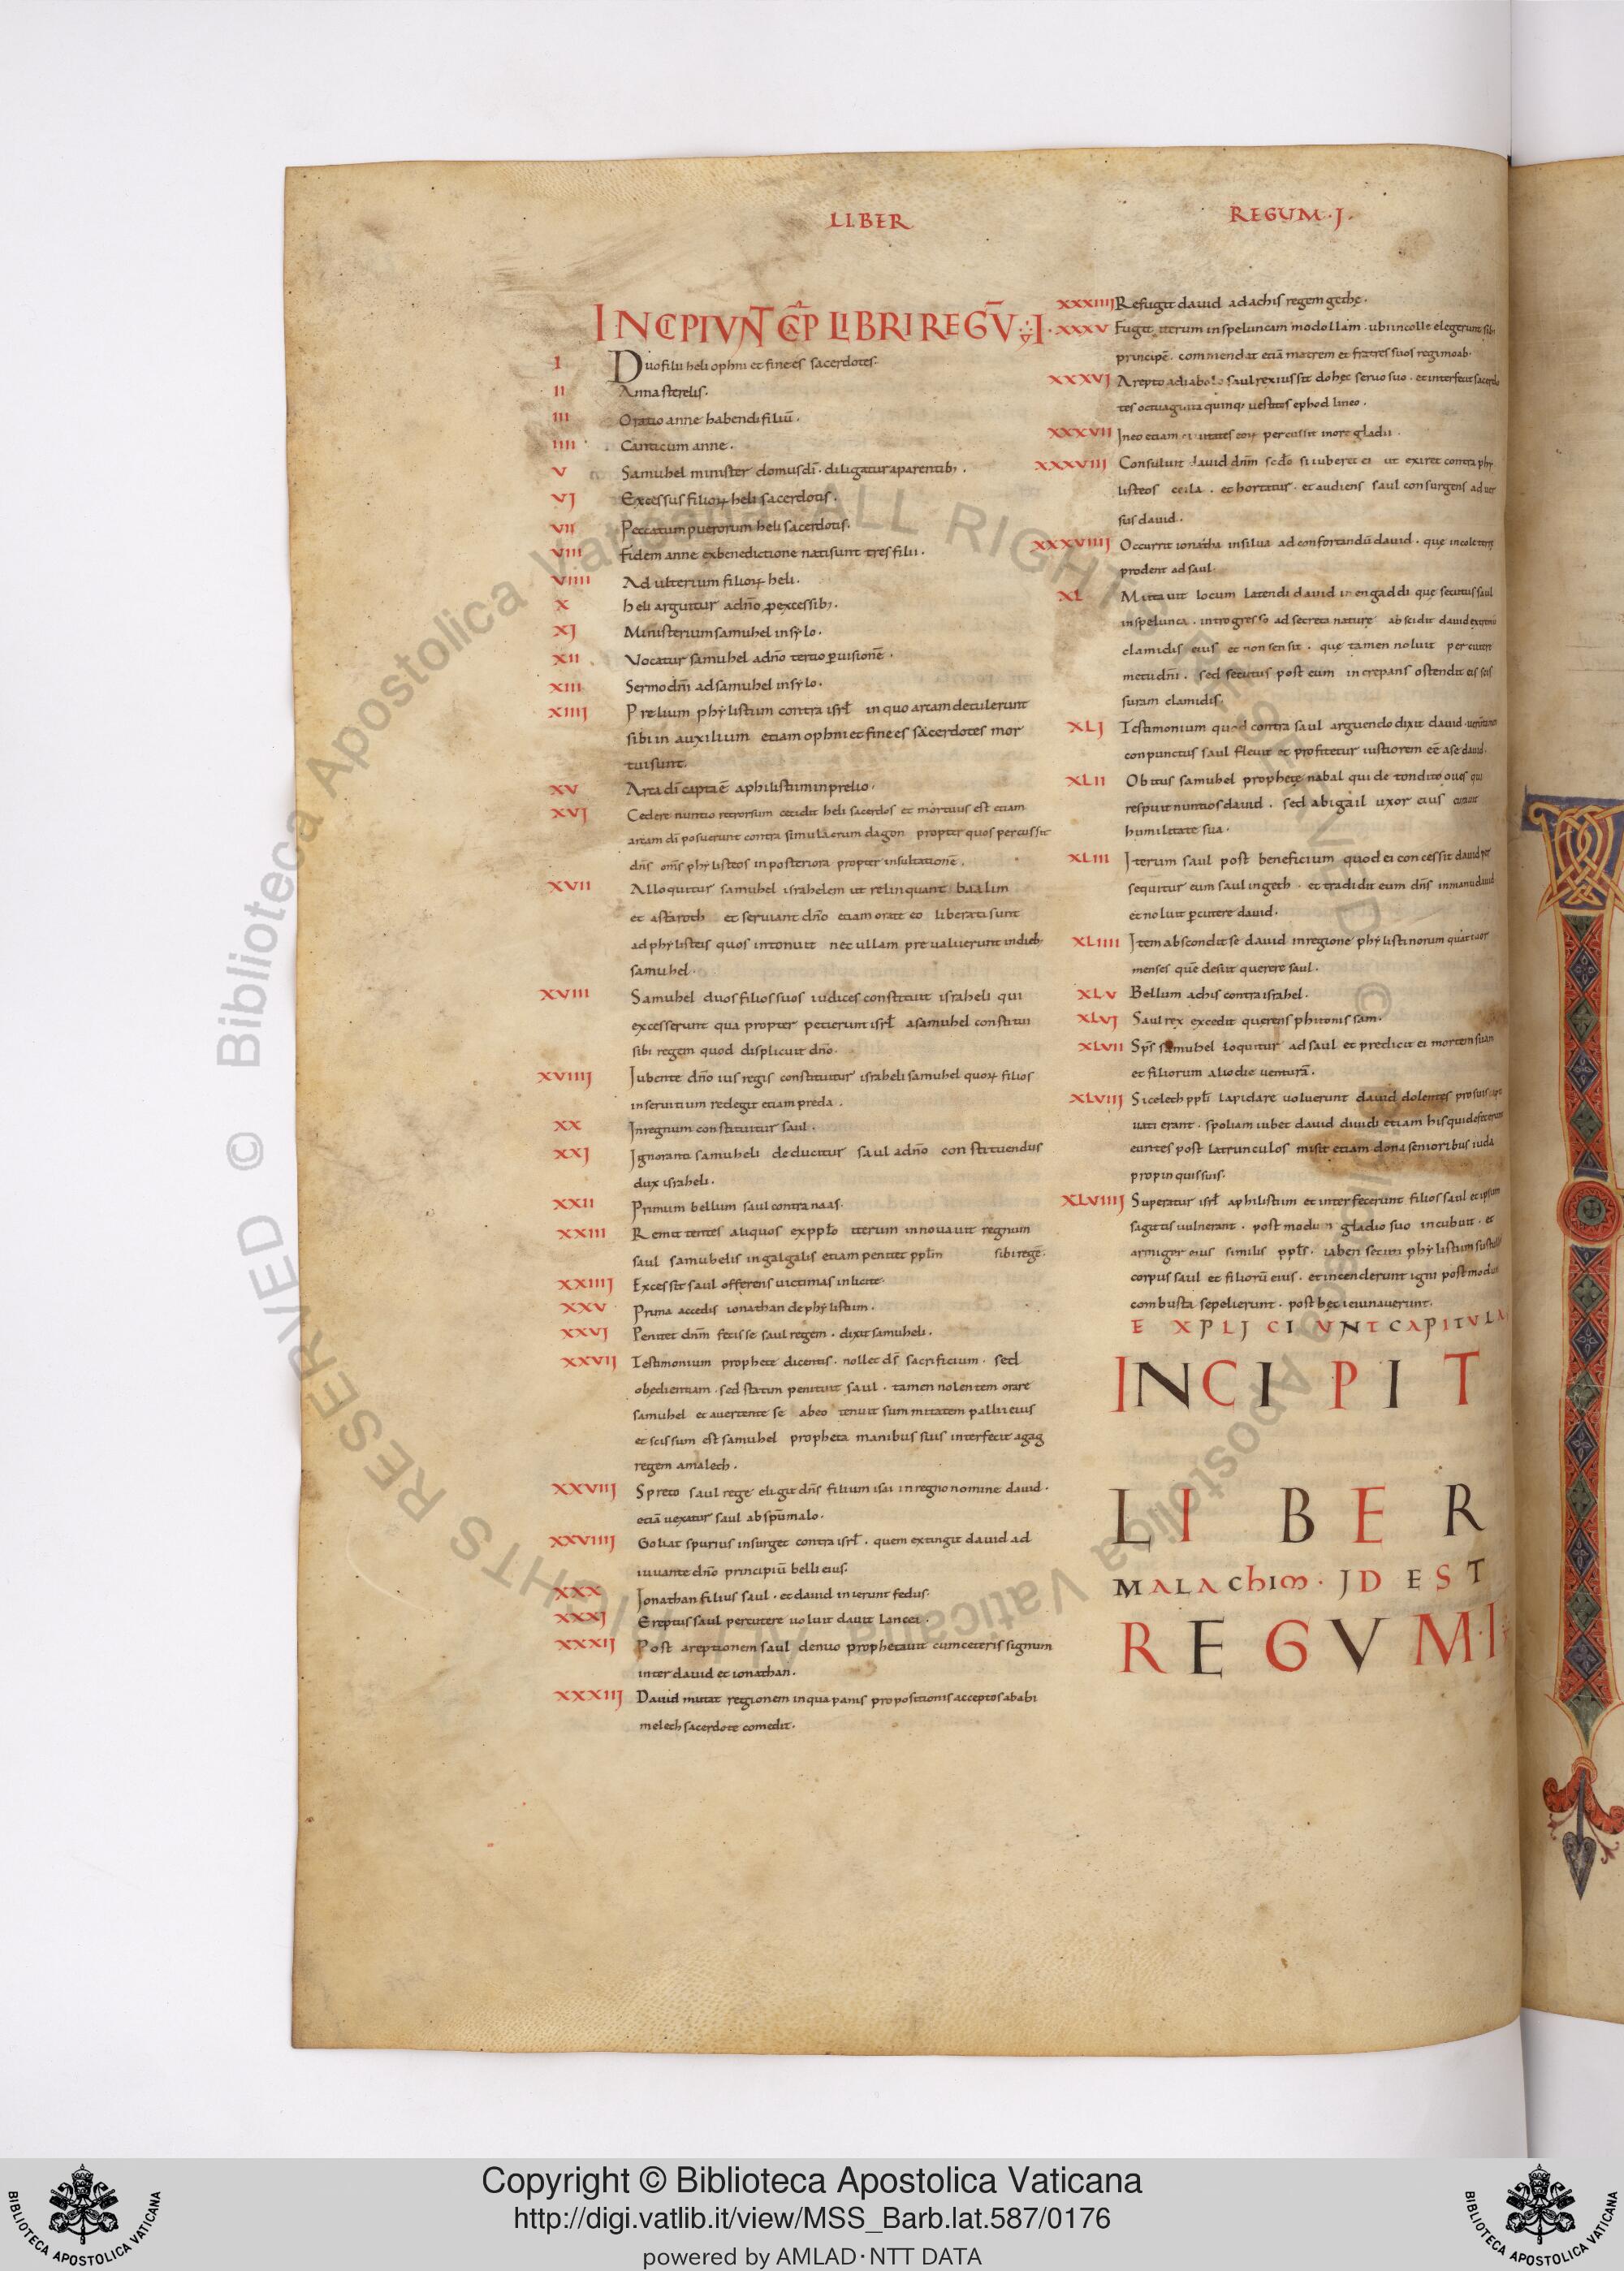 LIBER
REGUM · J ·
INCIPIUNT CAP LIBRI REGŪ I ·
I Duo filii heli ophni et finees sacerdotes ·
II Anna sterelis ·
III Oratio anne habendi filiū ·
IIII Canticum anne ·
V Samuhel minister domus dī · diligatur a parentib; ·
VJ Excessus filioꝝ heli sacerdotis ·
VII Peccatum puerorum heli sacerdotis ·
VIII Fidem anne ex benedictione nati sunt tres filii ·
VIIII Adulterium filioꝝ heli ·
X heli arguitur a dn̄o ꝑ excessib; ·
XJ Ministerium samuhel in sylo ·
XII Vocatur samuhel a dn̄o tertio ꝑ uisionē ·
XIII Sermo dn̄i ad samuhel in sylo ·
XIIIJ Prelium phylistium contra isrł in quo arcam detulerunt
sibi in auxilium etiam ophni et finees sacerdotes mor
tui sunt ·
XV Arca dī capta ē a philistium in prelio ·
XVJ Cedere nuntio retrorsum cecidit heli sacerdos et mortuus est etiam
arcam dī posuerunt contra simulacrum dagon propter quos percussit
dn̄s om̄s phylisteos in posteriora propter insultationē ·
XVII Alloquitur samuhel israhelem ut relinquant baalim
et astaroth et seruiant dn̄o etiam orate eo liberati sunt
ad phylisteis quos intonuit nec ullam preualuerunt in dieb;
samuhel ·
XVIII Samuhel duos filios suos iudices constituit israheli qui
excesserunt qua propter petierunt isrł a samuhel constitui
sibi regem quod displicuit dn̄o ·
XVIIIJ Jubente dn̄o ius regis constituitur israheli samuhel quoꝝ filios
in seruitium redegit etiam preda ·
XX Jn regnum constituitur saul ·
XXJ Jgnoranti samuheli deducitur saul a dn̄o constituendus
dux israheli ·
XXII Primum bellum saul contra naas ·
XXIII Remittentes aliquos ex ppło iterum innouauit regnum
saul samuhelis in galgalis etiam penitet ppłm sibi regē ·
XXIIIJ Excessit saul offerens uictimas inlicite ·
XXV Prima accedis ionathan de phylistium ·
XXVJ Penitet dn̄m fecisse saul regem · dixit samuheli ·
XXVIJ Testimonium prophete dicentis · nollet dš sacrificium · sed
obedientiam · sed statim penituit saul · tamen nolentem orare
samuhel et auertente se abeo tenuit summitatem pallii eius
et scissum est samuhel propheta manibus suis interfecit agag
regem amalech ·
XXVIIJ Spreto saul rege eligit dn̄s filium isai in regno nomine dauid ·
etiā uexatur saul ab spūm malo ·
XXVIIIJ Goliat spurius insurget contra isrł · quem extingit dauid ad
iuuante dn̄o principiū belli eius ·
XXX Jonathan filius saul · et dauid inierunt fedus ·
XXXJ Ereptus saul percutere uoluit dauit lancea ·
XXXIJ Post areptionem saul denuo prophetauit cum ceteris signum
inter dauid et ionathan ·
XXXIIJ Dauid mutat regionem in qua panis propositionis acceptos ab abi
melech sacerdote comedit ·
XXXIIIJ Refugit dauid ad achis regem gethę ·
XXXV Fugit iterum in speluncam modollam · ubi in colle elegerunt sibi
principē · commendat etiā matrem et fratres suos regi moab ·
XXXVJ Arepto a diabolo saul rex iussit dohec seruo suo · et interfecit sacerdo
tes octuaginta quinq; uestitos ephod lineo ·
XXXVII Jn eo etiam ciuitates eoꝝ percussit in ore gladii ·
XXXVIIJ Consuluit dauid dn̄m scđo si iuberet ei ut exiret contra phy
listeos ceila · et hortatur · et audiens saul consurgens aduer
sus dauid ·
XXXVIIIJ Occurrit ionatha in silua ad confortandū dauid · que incole tem
prodent ad saul ·
XL Mutauit locum latendi dauid in engaddi que secutus saul
in spelunca · introgresso ad secreta nature abscidit dauid extremū
clamidis eius et non sensit · que tamen noluit percutere
metu dn̄i · sed secutus post eum increpans ostendit ei scis
suram clamidis ·
XLJ Testimonium quod contra saul arguendo dixit dauid ·
conpunctus saul fleuit et profitetur iustiorem eē a se dauid ·
XLII Obitus samuhel prophete nabal qui de tondito oues qui
respuit nuntios dauid · sed abigail uxor eius
humilitate sua ·
XLIII Jterum saul post beneficium quod ei concessit dauid per
sequitur eum saul in geth · et tradidit eum dn̄s in manu dauid
et noluit ꝑcutere dauid ·
XLIIII Jtem abscondit se dauid in regione phylistinorum quattuor
menses quē desiit querere saul ·
XLV Bellum achis contra israhel ·
XLVJ Saul rex excedit querens phitonissam ·
XLVII Sps̄ samuhel loquitur ad saul et predicit ei mortem suam
et filiorum alio die venturā ·
XLVIIJ Sicelech ppłi lapidare uoluerunt dauid dolentes pro suis
uati erant · spoliam iubet dauid diuidi etiam his qui defecerunt
euntes post latrunculos misit etiam dona senioribus iuda
propinquis suis ·
XLVIIIJ Superatur isrł a philistium et interfecerunt filios saul et ipsum
sagittis uulnerant · post modum gladio suo incubuit · et
armiger eius similis ppłs · iaben secuti phylistium
corpus saul et filiorū eius · et incenderunt igni post modū
combusta sepelierunt · post hec ieiunauerunt ·
EXPLJCIUNT CAPITULA
INCIPIT
LIBER
MALACHIM · JD EST
REGVM · I
Copyright © Biblioteca Apostolica Vaticana
http://digi.vatlib.it/view/MSS_Barb.lat.587/0176
powered by AMLAD · NTT DATA
BIBLIOTECA APOSTOLICA VATICANA
BIBLIOTECA APOSTOLICA VATICANA
© Biblioteca Apostolica Vaticana ALL RIGHTS RESERVED
© Biblioteca Apostolica Vaticana ALL RIGHTS RESERVED